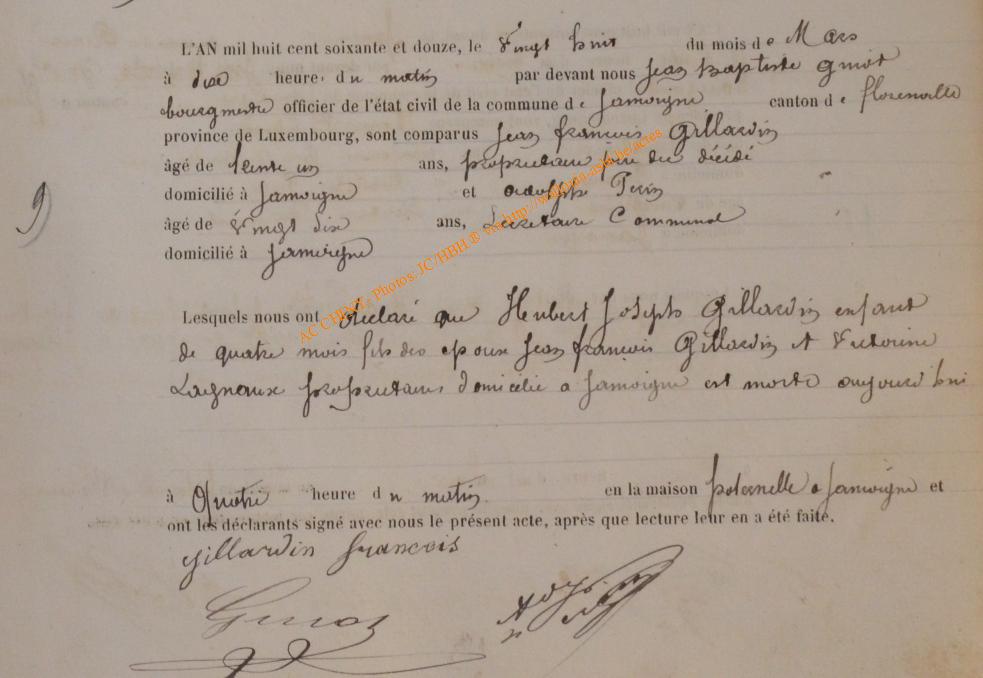 L'AN mil huit cent soixante et douze, le Vingt huit du mois de Mars
à dix heure du matin par devant nous Jean Baptiste
bourgmestre officier de l'état civil de la commune de Jamoigne canton de florenville
province de Luxembourg, sont comparus Jean françois Gillardin
âgé de trente un ans, propriétaire père du décédé
domicilié à Jamoigne et Adolphe
âgé de Vingt dix ans, Secretaire Communal
domicilié à Jamoigne
9
Lesquels nous ont déclaré que Hubert Joseph Gillardin enfant
de quatre mois fils des epoux Jean françois Gillardin et Victorine
Lagneaux propriétaires domicilié a Jamoigne est morte aujourd hui
à Quatre heure du matin en la maison paternelle a Jamoigne et
ont les déclarants signé avec nous le présent acte, après que lecture leur en a été faite.
Gillardin francois
ACCHDGT: Photos:JC/HBH ® via http://wallonia-asbl.be/actes